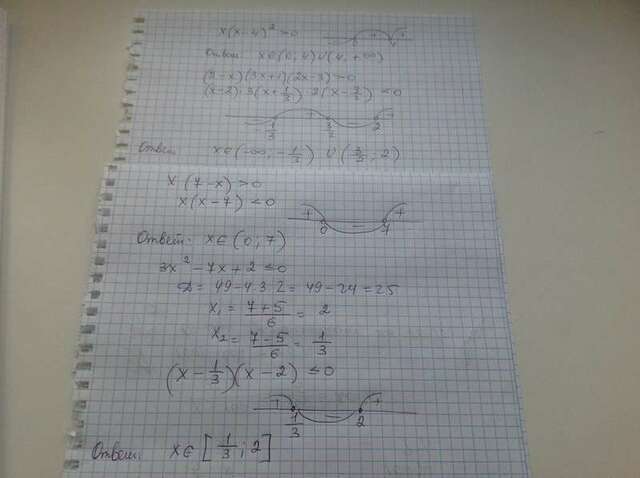 x(x-4)² >0
0 4
Ответ: x∈(0; 4)∪(4; +∞)
(2-x)(3x+1)(2x-3)>0
(x-2)·3(x+1/3)·2(x-3/2)<0
1/3 3/2 2
Ответ: x∈(-∞; -1/3) ∪ (3/2; 2)
x(7-x)>0
x(x-7)<0
+ 0 - 7 +
Ответ: x∈(0; 7)
3x²-7x+2≤0
D=49-4·3·2=49-24=25
x₁=(7+5)/6=2
x₂=(7-5)/6=1/3
(x-1/3)(x-2)≤0
+ 1/3 - 2 +
Ответ: x∈[1/3; 2]